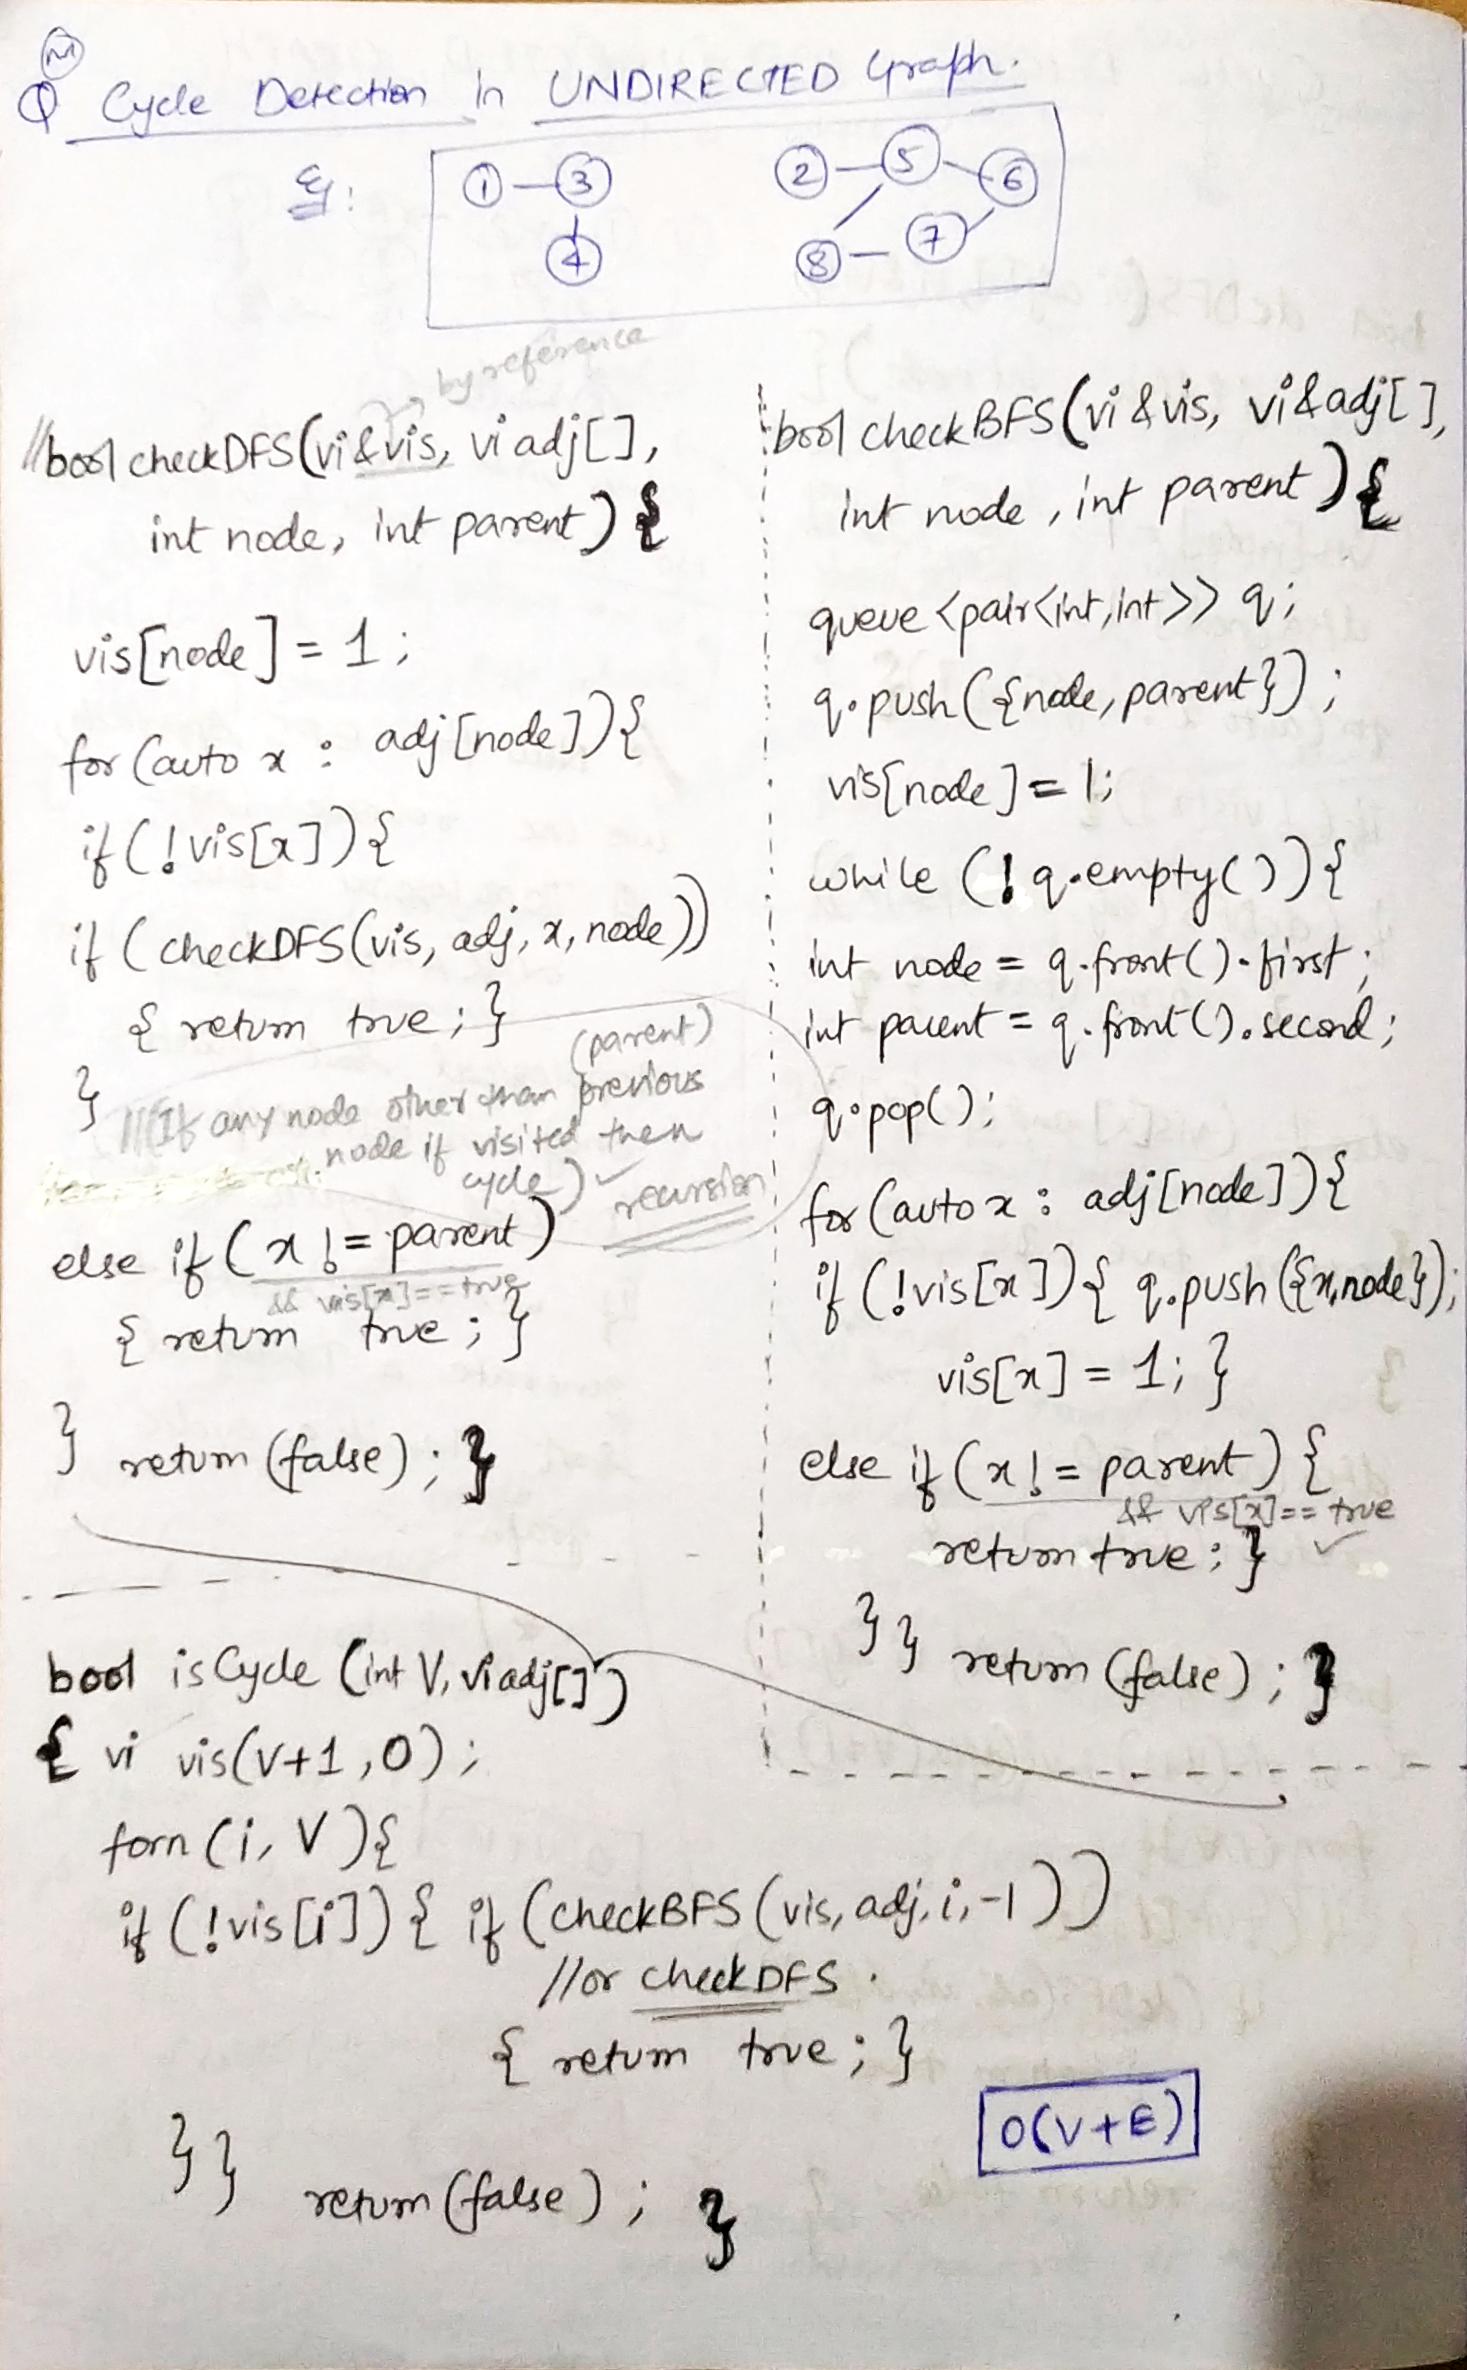 (M)
Q Cycle Detection in UNDIRECTED Graph.
Eg:
1 3 2 5 6
4 8 7
by reference
//bool checkDFS(vi &vis, vi adj[],
int node, int parent) {
vis[node] = 1;
for (auto x : adj[node]){
if (!vis[x]){
if (checkDFS(vis, adj, x, node))
{ return true; }
}
(parent)
//(If any node other than previous
node if visited then
cycle)
recursion
else if (x != parent)
&& vis[x]==true
{ return true; }
} return (false); }
bool checkBFS(vi &vis, vi &adj[],
int node, int parent) {
queue <pair<int,int>> q;
q.push({node, parent});
vis[node] = 1;
while (!q.empty()){
int node = q.front().first;
int parent = q.front().second;
q.pop();
for (auto x : adj[node]){
if (!vis[x]){ q.push({x,node});
vis[x] = 1; }
else if (x != parent) {
&& vis[x]== true
return true; }
}} return (false); }
bool isCycle (int V, vi adj[])
{ vi vis(V+1, 0);
forn (i, V){
if (!vis[i]){ if (checkBFS(vis, adj, i, -1))
//or checkDFS.
{ return true; }
O(V+E)
}} return (false); }